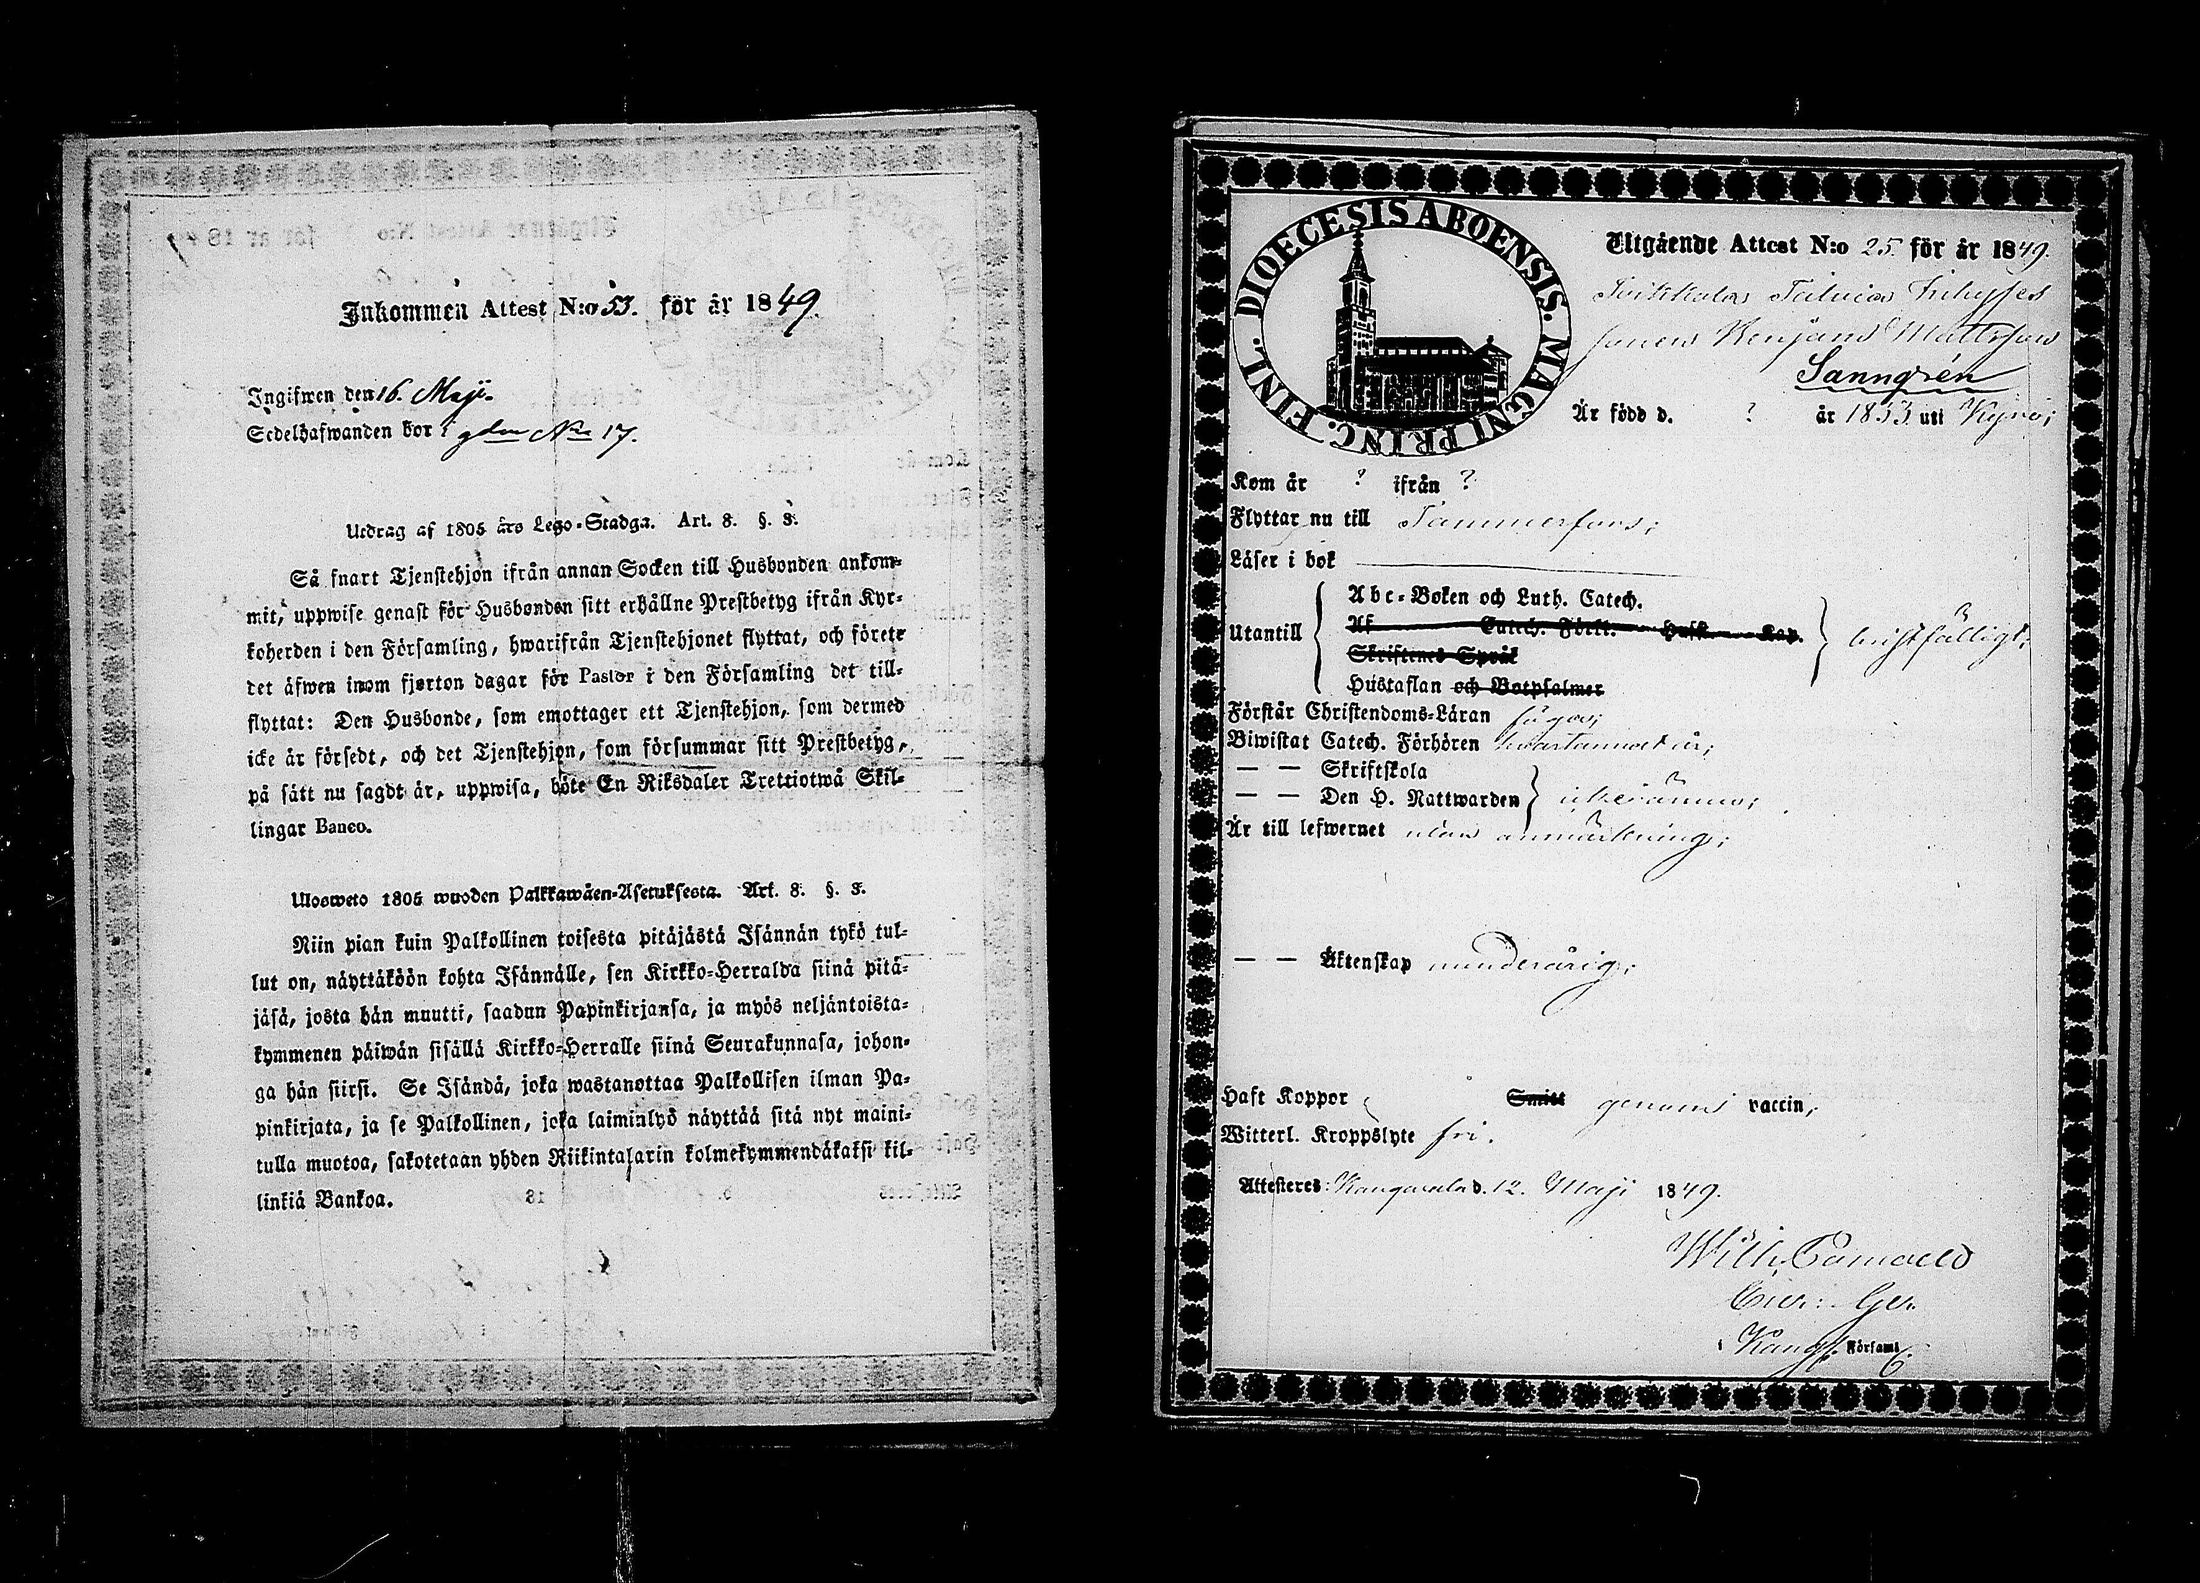 Inkommen Attest N:o 53. för år 1849.
Ingifwen den 16. Maji.
Sedelhafwanden bor i gden No 17.
Utdrag af 1805 års Lego-Stadga. Art. 8. §. 3.
Så snart Tjenstehjon ifrån annan Socken till Husbonden ankom-
mit, uppwise genast för Husbonden sitt erhållne Prestbetyg ifrån Kyr-
koherden i den Församling, hwarifrån Tjenstehjonet flyttat, och förete
det äfwen inom fjorton dagar för Pastor i den Församling det till-
flyttat: Den Husbonde, som emottager ett Tjenstehjon, som dermed
icke är försedt, och det Tjenstehjon, som försummar sitt Prestbetyg,
på sätt nu sagdt är, uppwisa, böte En Riksdaler Trettiotwå Skil-
lingar Banco.
Ulosweto 1805 wuoden Palkkawäen-Asetuksesta. Art. 8. §. 3.
Niin pian kuin Palkollinen toisesta pitäjästä Isännän tykö tul-
lut on, näyttäköön kohta Isännälle, sen Kirkko-Herralda siinä pitä-
jäsä, josta hän muutti, saadun Papinkirjansa, ja myös neljäntoista-
kymmenen päiwän sisällä Kirkko-Herralle siinä Seurakunnasa, johon-
ga hän siirsi. Se Isändä, joka wastanottaa Palkollisen ilman Pa-
pinkirjata, ja se Palkollinen, joka laiminlyö näyttää sitä nyt maini-
tulla muotoa, sakotetaan yhden Riikintalarin kolmekymmendäkaksi kil-
linkiä Bankoa.
DIOECESIS ABOENSIS. MAGNI PRINC. FINL.
Utgående Attest N:o 25. för år 1849.
Inhyses
sonen Benjam Mattsson
Sanngrén
Är född d. ? år 1833 uti Kyrö;
Kom år ? ifrån ?
Flyttar nu till Tammerfors;
Läser i bok
Abc-Boken och Luth. Catech.
Utantill Af Catech. Förkl. Husf. Kap. bristfälligt;
Skriftenes Språk
Hustaflan och Botpsalmer
Förstår Christendoms-Läran någor;
Biwistat Catech. Förhören
— — Skriftskola
— — Den H. Nattwarden icke ännu;
Är till lefwernet utan anmärkning;
— — Äktenskap minderårig;
Haft Koppor Smitt genom vaccin;
Witterl. Kroppslyte fri.
Attesteres: Kangasala d. 12. Maji 1849.
Wilh.
i Kangs. Församl.